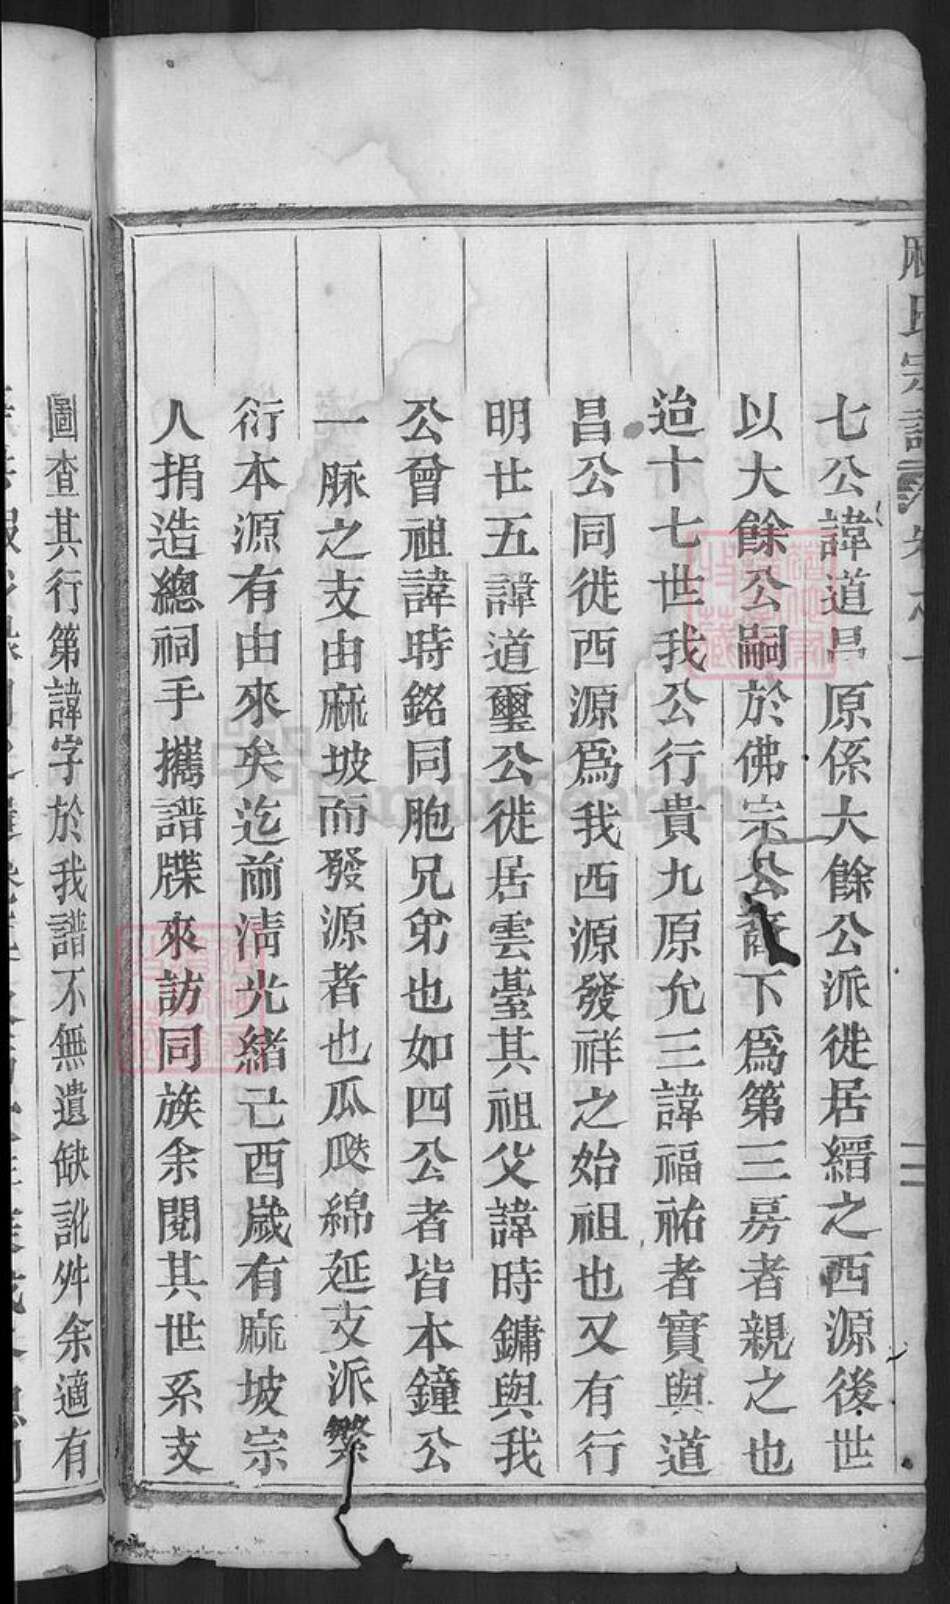 七公諱道昌原係大餘公派徙居縉之西源後世
以大餘公嗣於佛宗公裔下爲第三房者親之也
迨十七世我公行貴九原允三諱福祐者實與道
昌公同徙西源爲我西源發祥之始祖也又有行
明廿五諱道璽公徙居雲臺其祖父諱時鏞與我
公曾祖諱時銘同胞兄弟也如四公者皆本鐘公
一脉之支由麻坡而發源者也瓜瓞綿延支派繁
衍本源有由來矣迄前清光緒己酉歲有麻坡宗
人捐造總祠手攜譜牒來訪同族余閱其世系支
圖查其行第諱字於我譜不無遺缺訛舛余適有
氏宗譜
FamilySearch